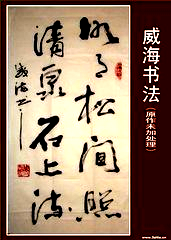 威海书法
（原作未加处理）
明月松間照
清泉石上流
威海书